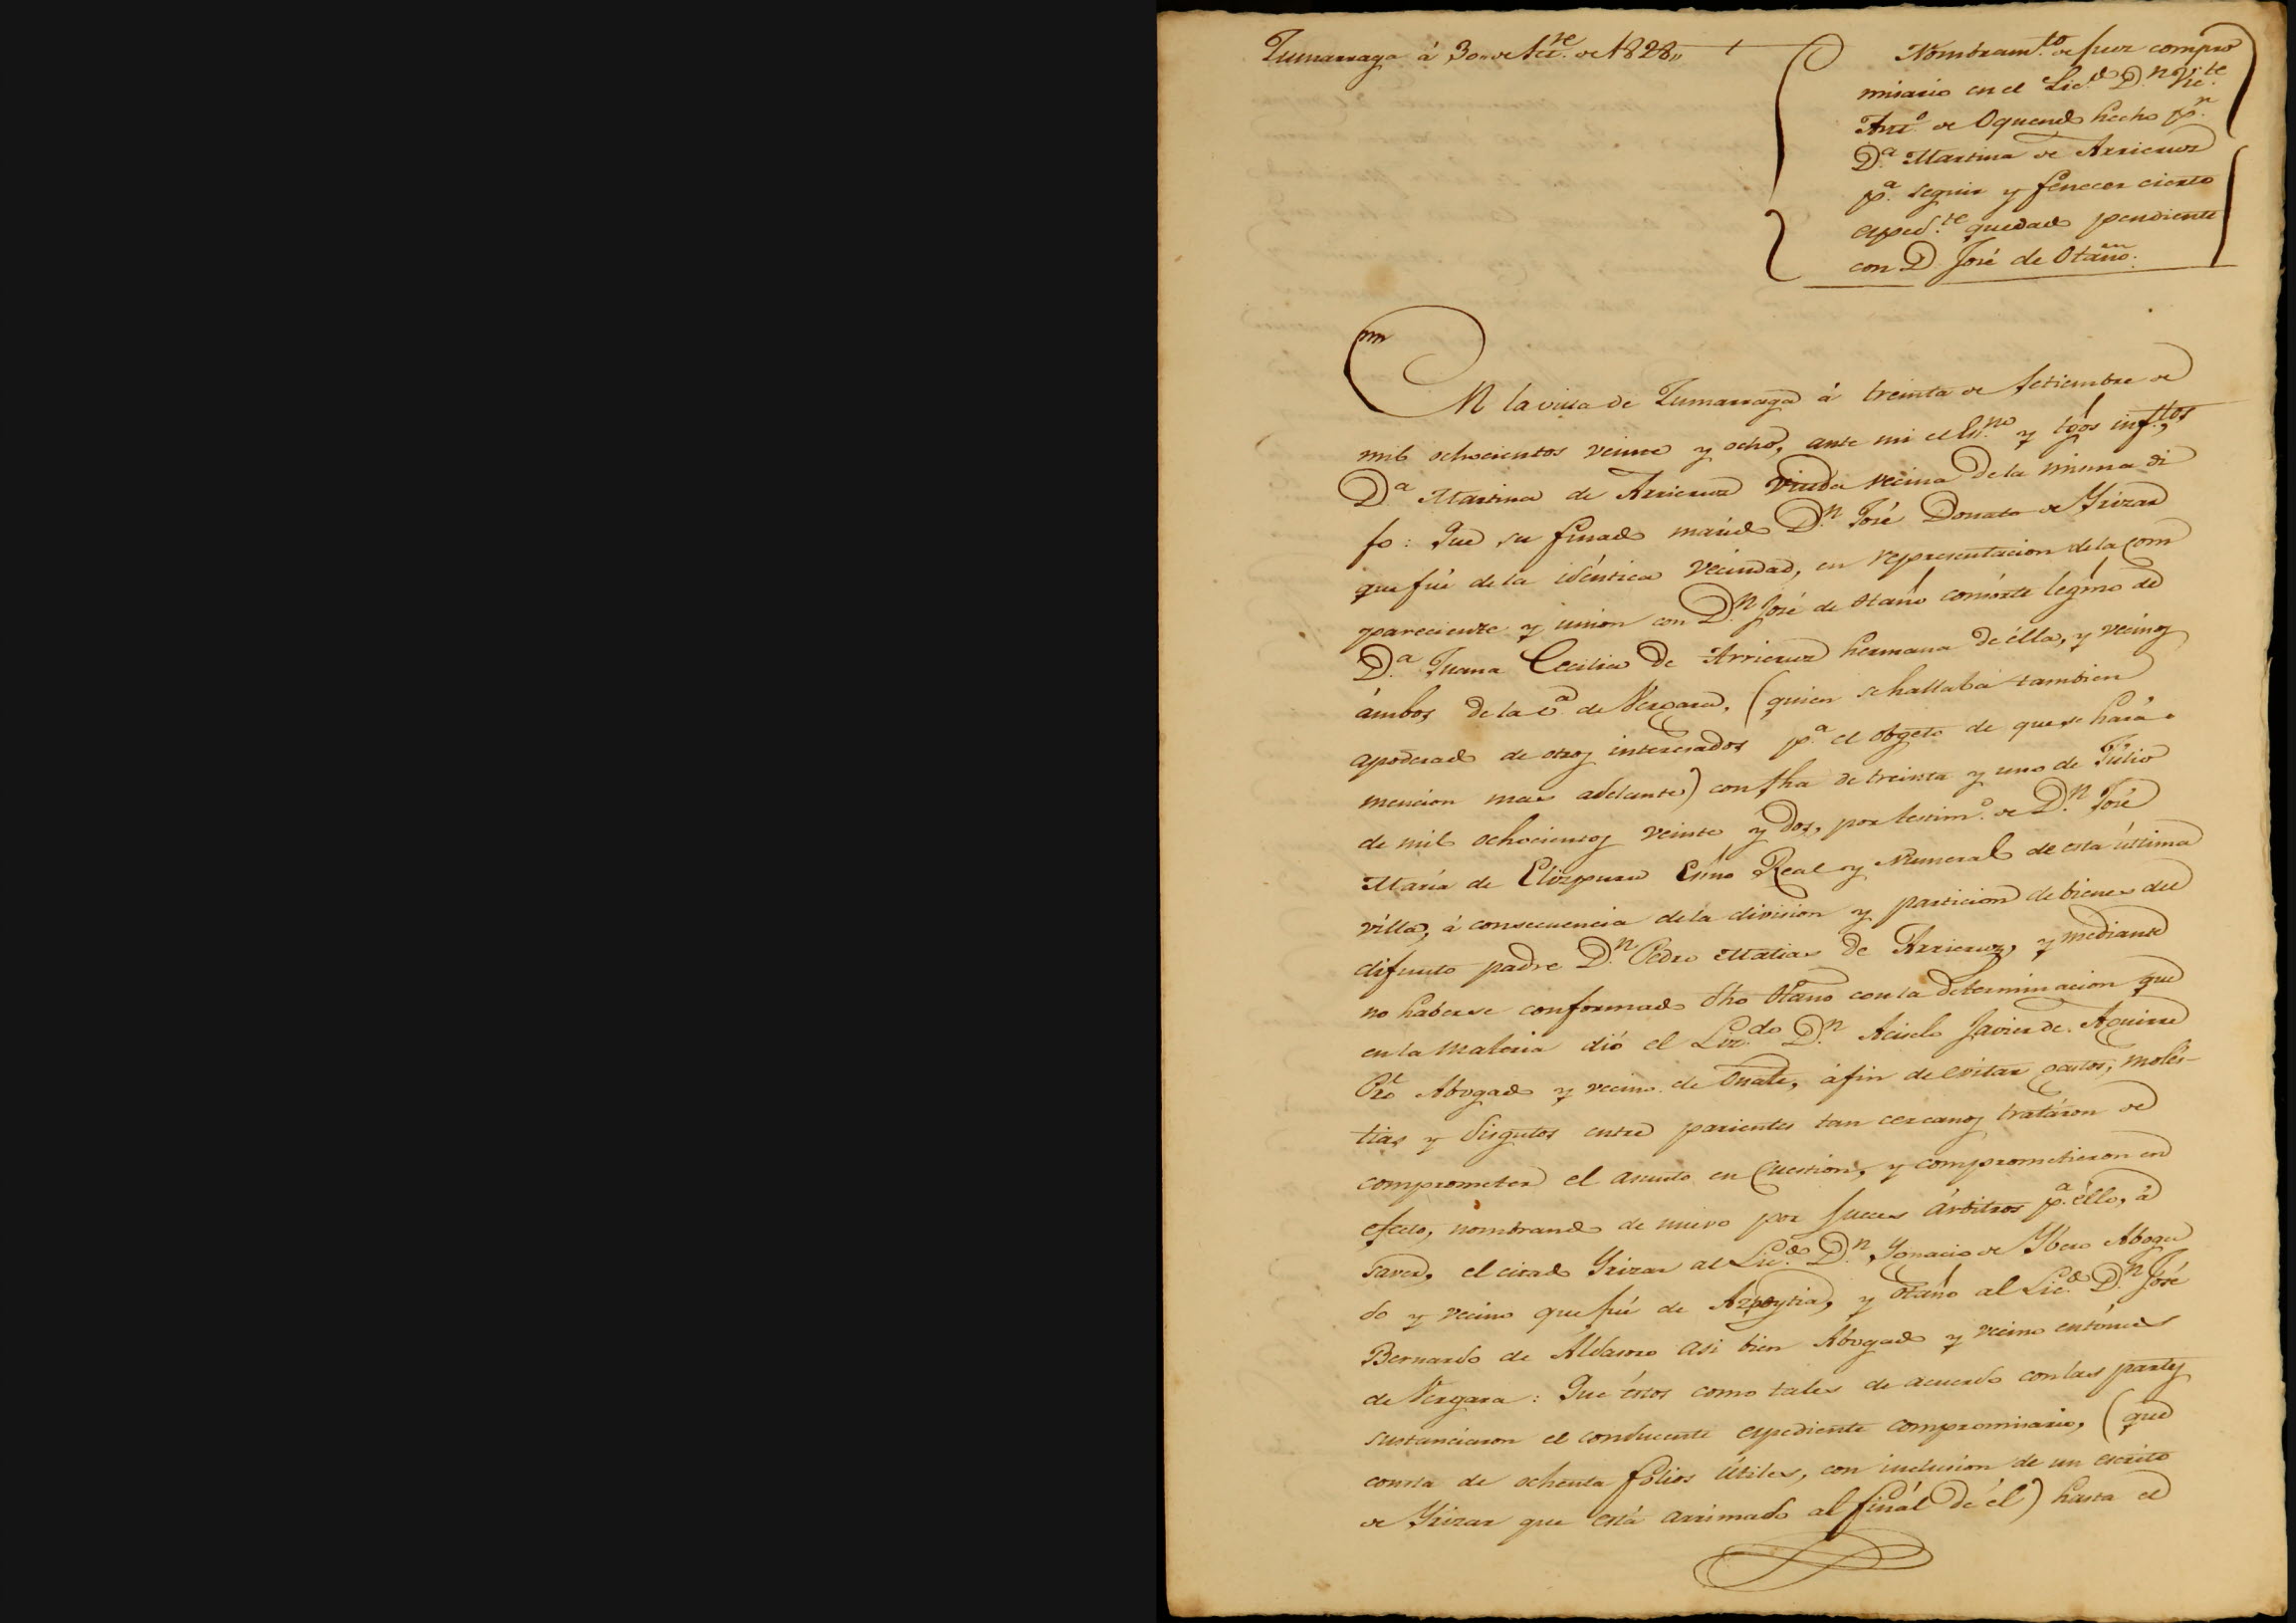 Zumarraga á 30,, de Set.re de 1828,,
Nombram.to de juez compro
misario en el Lic.do D.n Vic.te
Ant.o de Oquendo hecho p.r
D.a Martina de Arricruz
p.a seguir y fenecer cierto
esped.te quedado pendiente
con D. José de Otaño.
En la villa de Zumarraga á treinta de Setiembre de
mil ochocientos veinte y ocho, ante mi el Es.no y tgos inf.ttos
D.a Martina de Arricruz viuda vecina de la misma di
jo: Que su finado marido D.n José Donato de Yrizar
que fué de la idéntica vecindad, en representacion de la com
pareciente y union con D.n José de Otaño consorte legmo de
D.a Juana Cecilia de Arricruz hermana de élla, y vecinos
ámbos de la v.a de Vergara, (quien se hallaba tambien
apoderado de otros interesados p.a el obgeto de que se hará
mencion mas adelante) con fha de treinta y uno de Júlio
de mil ochocientos veinte y dos, por testim.o de D.n José
María de Elizpuru Esno Real y Numeral de esta última
villa, á consecuencia de la division y particion de bienes del
difunto padre D.n Pedro Matias de Arricruz, y mediante
no haberse conformado dho Otaño con la determinacion que
en la materia dió el Liz.do D.n Acisclo Javier de Aguirre
Pro Abogado y vecino de Oñate, á fin de evitar gastos, moles-
tias y disgutos entre parientes tan cercanos tratáron de
comprometer el asunto en cuestion, y comprometieron en
efecto, nombrando de nuevo por Jueces árbitros p.a éllo, á
saver, el citado Yrizar al Lic.do D.n Ygnacio de Ybero Aboga
do y vecino que fué de Azpeytia, y Otaño al Lic.do D.n José
Bernardo de Aldasoro asi bien Abogado y vecino entónces
de Vergara: Que éstos como tales de acuerdo con las partes
sustanciaron el conducente espediente compromisario, (que
consta de ochenta fólios útiles, con inclusion de un escrito
de Yrizar que está arrimado al finál de él) hasta el